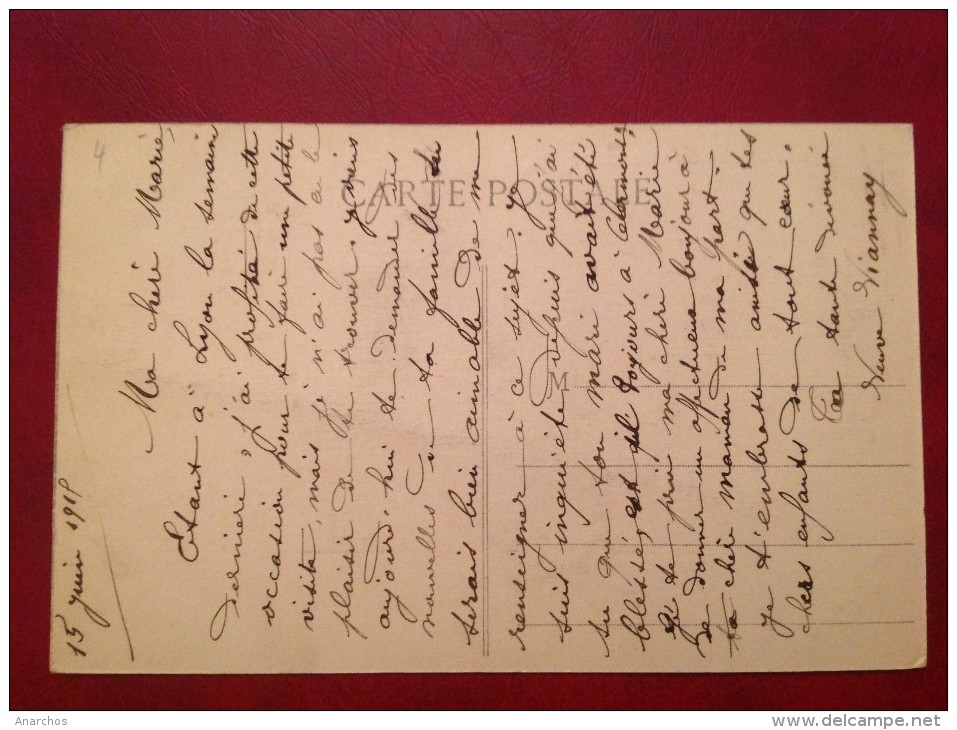 15 juin 1915
4
Ma cheré Marie,
Etant à Lyon la semain
dernier, j'ai profité de cette
occasion pour te fair une petit
visite, mais je n'ai pas eu le
plaisir de te trouver. je viens
aujourd'hui te demander des
nouvelles de ta famille tu
serais bien aimable de m
CARTE POSTALE
M
renseigner à ce sujet. je
suis inquiète depuis que j'ai
su que ton mari avait été
blessé, est il toujours à Clermont?
je te prie ma cheri Marie
de donner un affectueux bonjour à
ta chère maman de ma part.
je t'embrasse ainsi que tes
chers enfants de tout cœur.
Ta tante dévouée
Veuve Viannay
Anarchos
www.delcampe.net